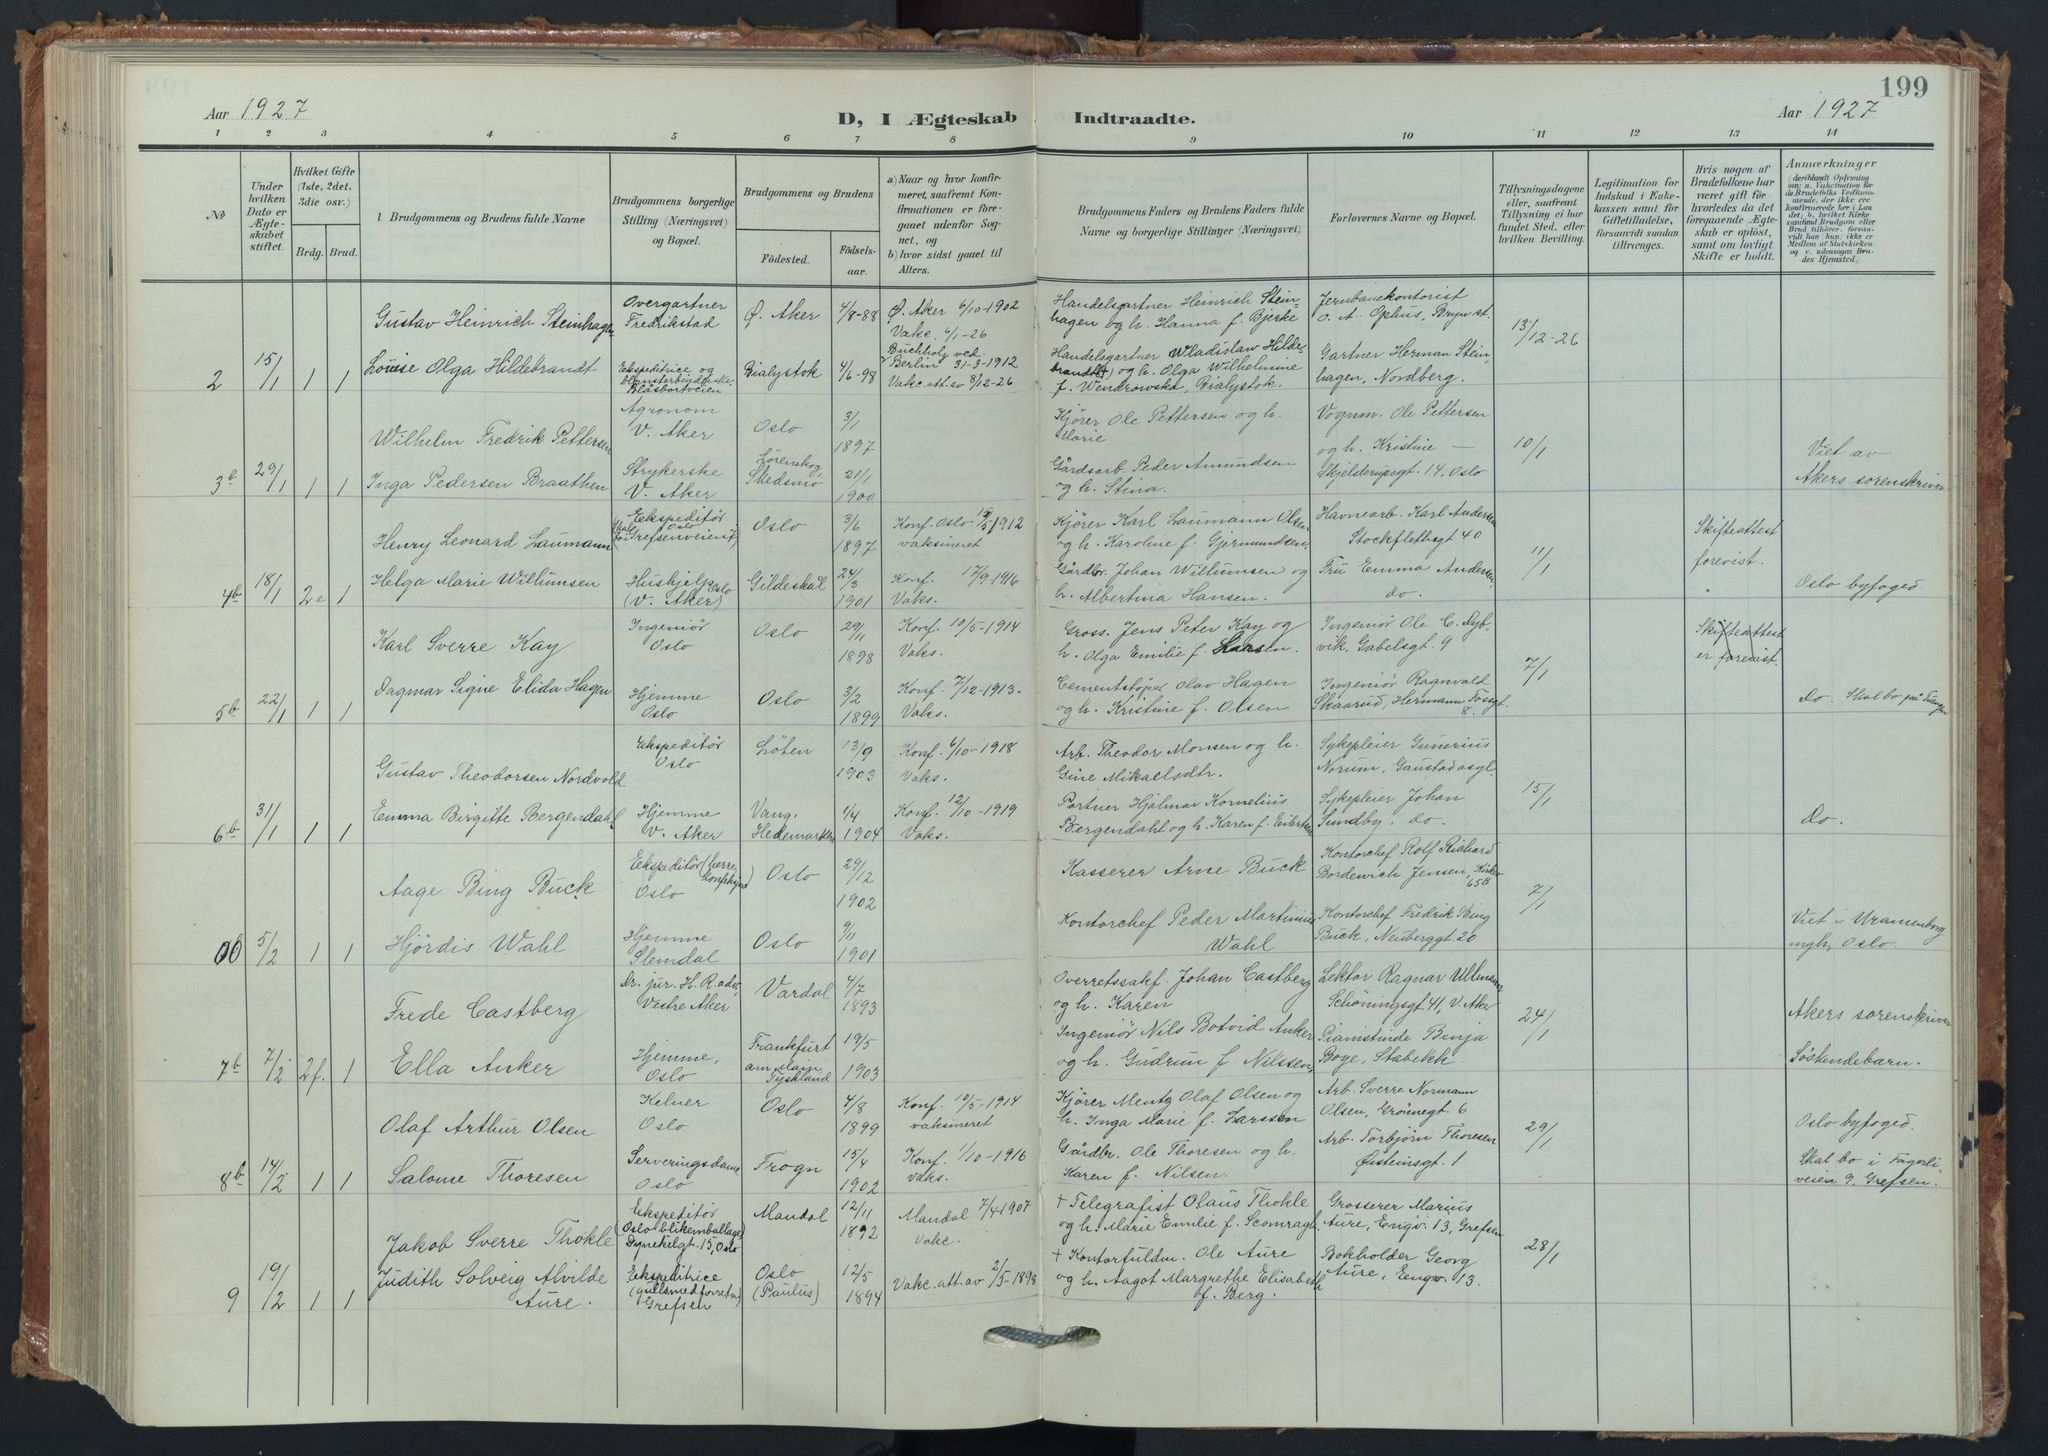 199
Aar 1927
D, I Ægteskab Indtraadte.
Aar 1927
1 2 3 4 5 6 7 8 9 10 11 12 13 14
No
Under hvilken Dato er Ægteskabet stiftet.
Hvilket Gifte (1ste, 2det, 3die osv.)
Brdg. Brud.
Brudgommens og Brudens fulde Navne
Brudgommens borgerlige Stilling (Næringsvei) og Bopæl.
Brudgommens og Brudens
Födested.
Födselsaar.
a) Naar og hvor konfirmeret, saafremt Konfirmationen er foregaaet udenfor Sognet, og
b) hvor sidst gaaet til Alters.
Brudgommens Faders og Brudens Faders fulde Navne og borgerlige Stillinger (Næringsvei)
Forlovernes Navne og Bopæl.
Tillysningsdagene eller, saafremt Tillysning ei har fundet Sted, efter hvilken Bevilling.
Legitimation for Indskud i Enkekassen samt for Giftetilladelse, forsaavidt saadan tiltrænges.
Hris nogen af Brudefolkene har været gift för hvorledes da det foregaaende Ægteskab er oplöst, samt om lovligt Skifte er holdt.
Anmærkninger
(deriblandt Oplysning om: a. Vakcination for de Brudefolks Vedkommende, der ikke ere konfirmerede her i Landet; b. hvilket Kirkesamfund Brudgom eller Brud tilhörer, forsaavidt han (hun) ikke er Medlem af Statskirken, og c. udensogns Brudes Hjemsted.)
Gustav Heinrich Steinhagen
Overgartner
Fredrikstad
Ø. Aker
4/8-88
Ø. Aker 6/10-1902
Vakc. 6/1-26
Handelsgartner Heinrich Steinhagen og h. Hanna f. Bjerke
Jernbanekontorist
O. A. Ophus, Bryn st.
13/12-26
2
15/1
1 1
Louise Olga Hildebrandt
Ekspeditrice og
blomsterbinderske
Bialystok
4/6-98
Buchholz ved
Berlin 31-3-1912
Vakc. att. av 8/12-26
Handelsgartner Wladislaw Hildebrandt og h. Olga Wilhelmine
f. Wendrowska, Bialystok.
Gartner Herman Steinhagen, Nordberg.
Wilhelm Fredrik Pettersen
Agronom
V. Aker
Oslo
3/1
1897
Kjörer Ole Pettersen og h.
Marie
Vognm. Ole Pettersen
og h. Kristine —
Skjelderupsgt. 14, Oslo
10/1
3b
29/1
1 1
Inga Pedersen Braathen
Strykerske
V. Aker
Lørenskog
Skedsmo
21/1
1900
Gårdsarb. Peder Amundsen
og h. Stina.
Viet av
Akers sorenskriver
Henry Leonard Laumann
Ekspeditör
Oslo
Oslo
3/6
1897
Konf. Oslo 1912
vaksineret
Kjörer Karl Laumann Olsen
og h. Karoline f. Gjermundsen.
Havnearb. Karl Andersen
Stockflethsgt 40
11/1
Skifteattest
forevist.
4b
18/1
2e 1
Helga Marie Willumsen
Hushjelp Oslo
(V. Aker)
Gildeskål
24/3
1901
Konf. 17/9-1916
Vaks.
Gårdbr. Johan Willumsen og
h. Albertina Hansen.
Fru Emma Andersen
do.
Oslo byfoged.
Karl Sverre Kay
Ingeniör
Oslo
Oslo
29/11
1898
Konf. 10/5-1914
Vaks.
Gross. Jens Peter Kay og
h. Olga Emilie f. Larsen.
Ingeniör Ole C. Dybvik, Gabelsgt. 9
7/1
Skifteattest
er forevist.
5b
22/1
1 1
Dagmar Signe Elida Hagen
Hjemme
Oslo
Oslo
3/2
1899
Konf. 7/12-1913.
Vaks.
Cementstöper Olav Hagen
og h. Kristine f. Olsen
Ingeniör Ragnvald
Skaarud, Hermann Fossgt.
8.
do. Skal bo på
Gustav Theodorsen Nordvold
Ekspeditör
Oslo
Löten
13/9
1903
Konf. 6/10-1918
Vaks.
Arb. Theodor Monsen og h.
Gine Mikaelsdtr.
Sykepleier Gunerius
Norum, Gaustadasyl.
15/1
6b
31/1
1 1
Emma Birgitte Bergendahl
Hjemme
V. Aker
Vang,
Hedemarken
1/4
1904
Konf. 12/10-1919
Vaks.
Portner Hjalmar Kornelius
Bergendahl og h. Karen f. Eilertsen
Sykepleier Johan
Sundby, do.
Do.
Aage Bing Buck
Ekspeditör (herrekonfeksjon)
Oslo
Oslo
29/12
1902
Kasserer Arne Buck
Kontorchef Rolf Richard
Bordewich Jensen,
65B
7/1
5/2
1 1
Hjördis Wahl
Hjemme
Slemdal
Oslo
9/11
1901
Kontorchef Peder Martinius
Wahl
Kontorchef Fredrik Bing
Buck, Neuberggt. 20
Viet i Uranienborg
mgh, Oslo.
Frede Castberg
Dr. jur. H. R. adv,
Vestre Aker
Vardal
4/7
1893
Overretssakf. Johan Castberg
og h. Karen
Lektor Ragnar Ullmann
Schöningsgt. 41, V. Aker
24/1
Akers sorenskriver
7b
7/2
2f. 1
Ella Anker
Hjemme,
Oslo
Frankfurt
am Main,
Tyskland
19/5
1903
Ingeniör Nils Botvid Anker
og h. Gudrun f. Nilssen,
Pianistinde Benja
Boye, Stabekk.
Söskendebarn.
Olaf Arthur Olsen
Kelner
Oslo
Oslo
4/8
1899
Konf. 10/5-1914
vaksineret
Kjörer Mentz Olaf Olsen og
h. Inga Marie f. Larssen
Arb. Sverre Normann
Olsen, Grönnegt. 6
29/1
Oslo byfoged.
8b
14/2
1 1
Salome Thoresen
Serveringsdame
Oslo
Frogn
15/4
1902
Konf. 1/10-1916
vaks.
Gårdbr. Ole Thoresen og h.
Karen f. Nilsen.
Arb. Torbjörn Thoresen
Øisteinsgt. 1
Skal bo i Fagerliveien 9, Grefsen.
Jakob Sverre Thokle
Ekspeditör
(Oslo blikemballage)
Dynekilgt. 15, Oslo
Mandal
12/11
1892
Mandal 7/4-1907
Vakc.
+ Telegrafist Olaus Thokle
og h. Marie Emilie f. Scomragh
Grosserer Marius
Aure, Engv. 13, Grefsen
28/1
9
19/2
1 1
Judith Solveig Alvilde
Aure.
Ekspeditrice
(gullsmedforretn.)
Grefsen
Oslo
(Paulus)
12/5
1894
Vakc. att. av 2/5-1898
+ Kontorfuldm. Ole Aure
og h. Aagot Margrethe Elisabeth
f. Berg.
Bokholder Georg
Aure, Engv. 13.